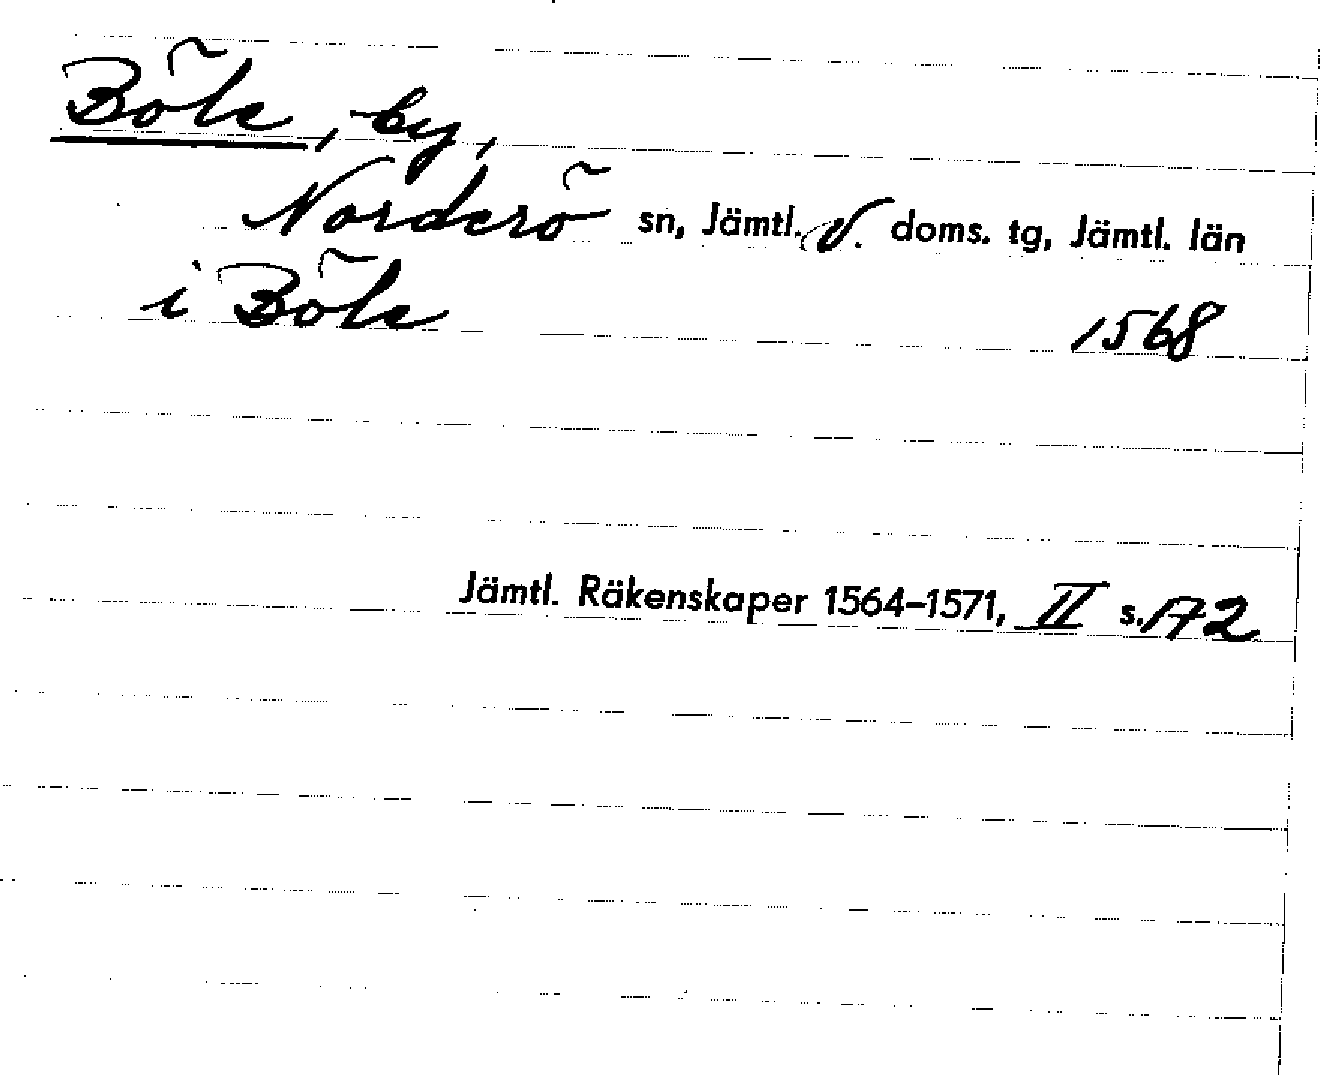 Böle, by,
Norderö sn, Jämtl. V. doms. tg, Jämtl. län
i Böle 1568
Jämtl. Räkenskaper 1564–1571, II s. 172